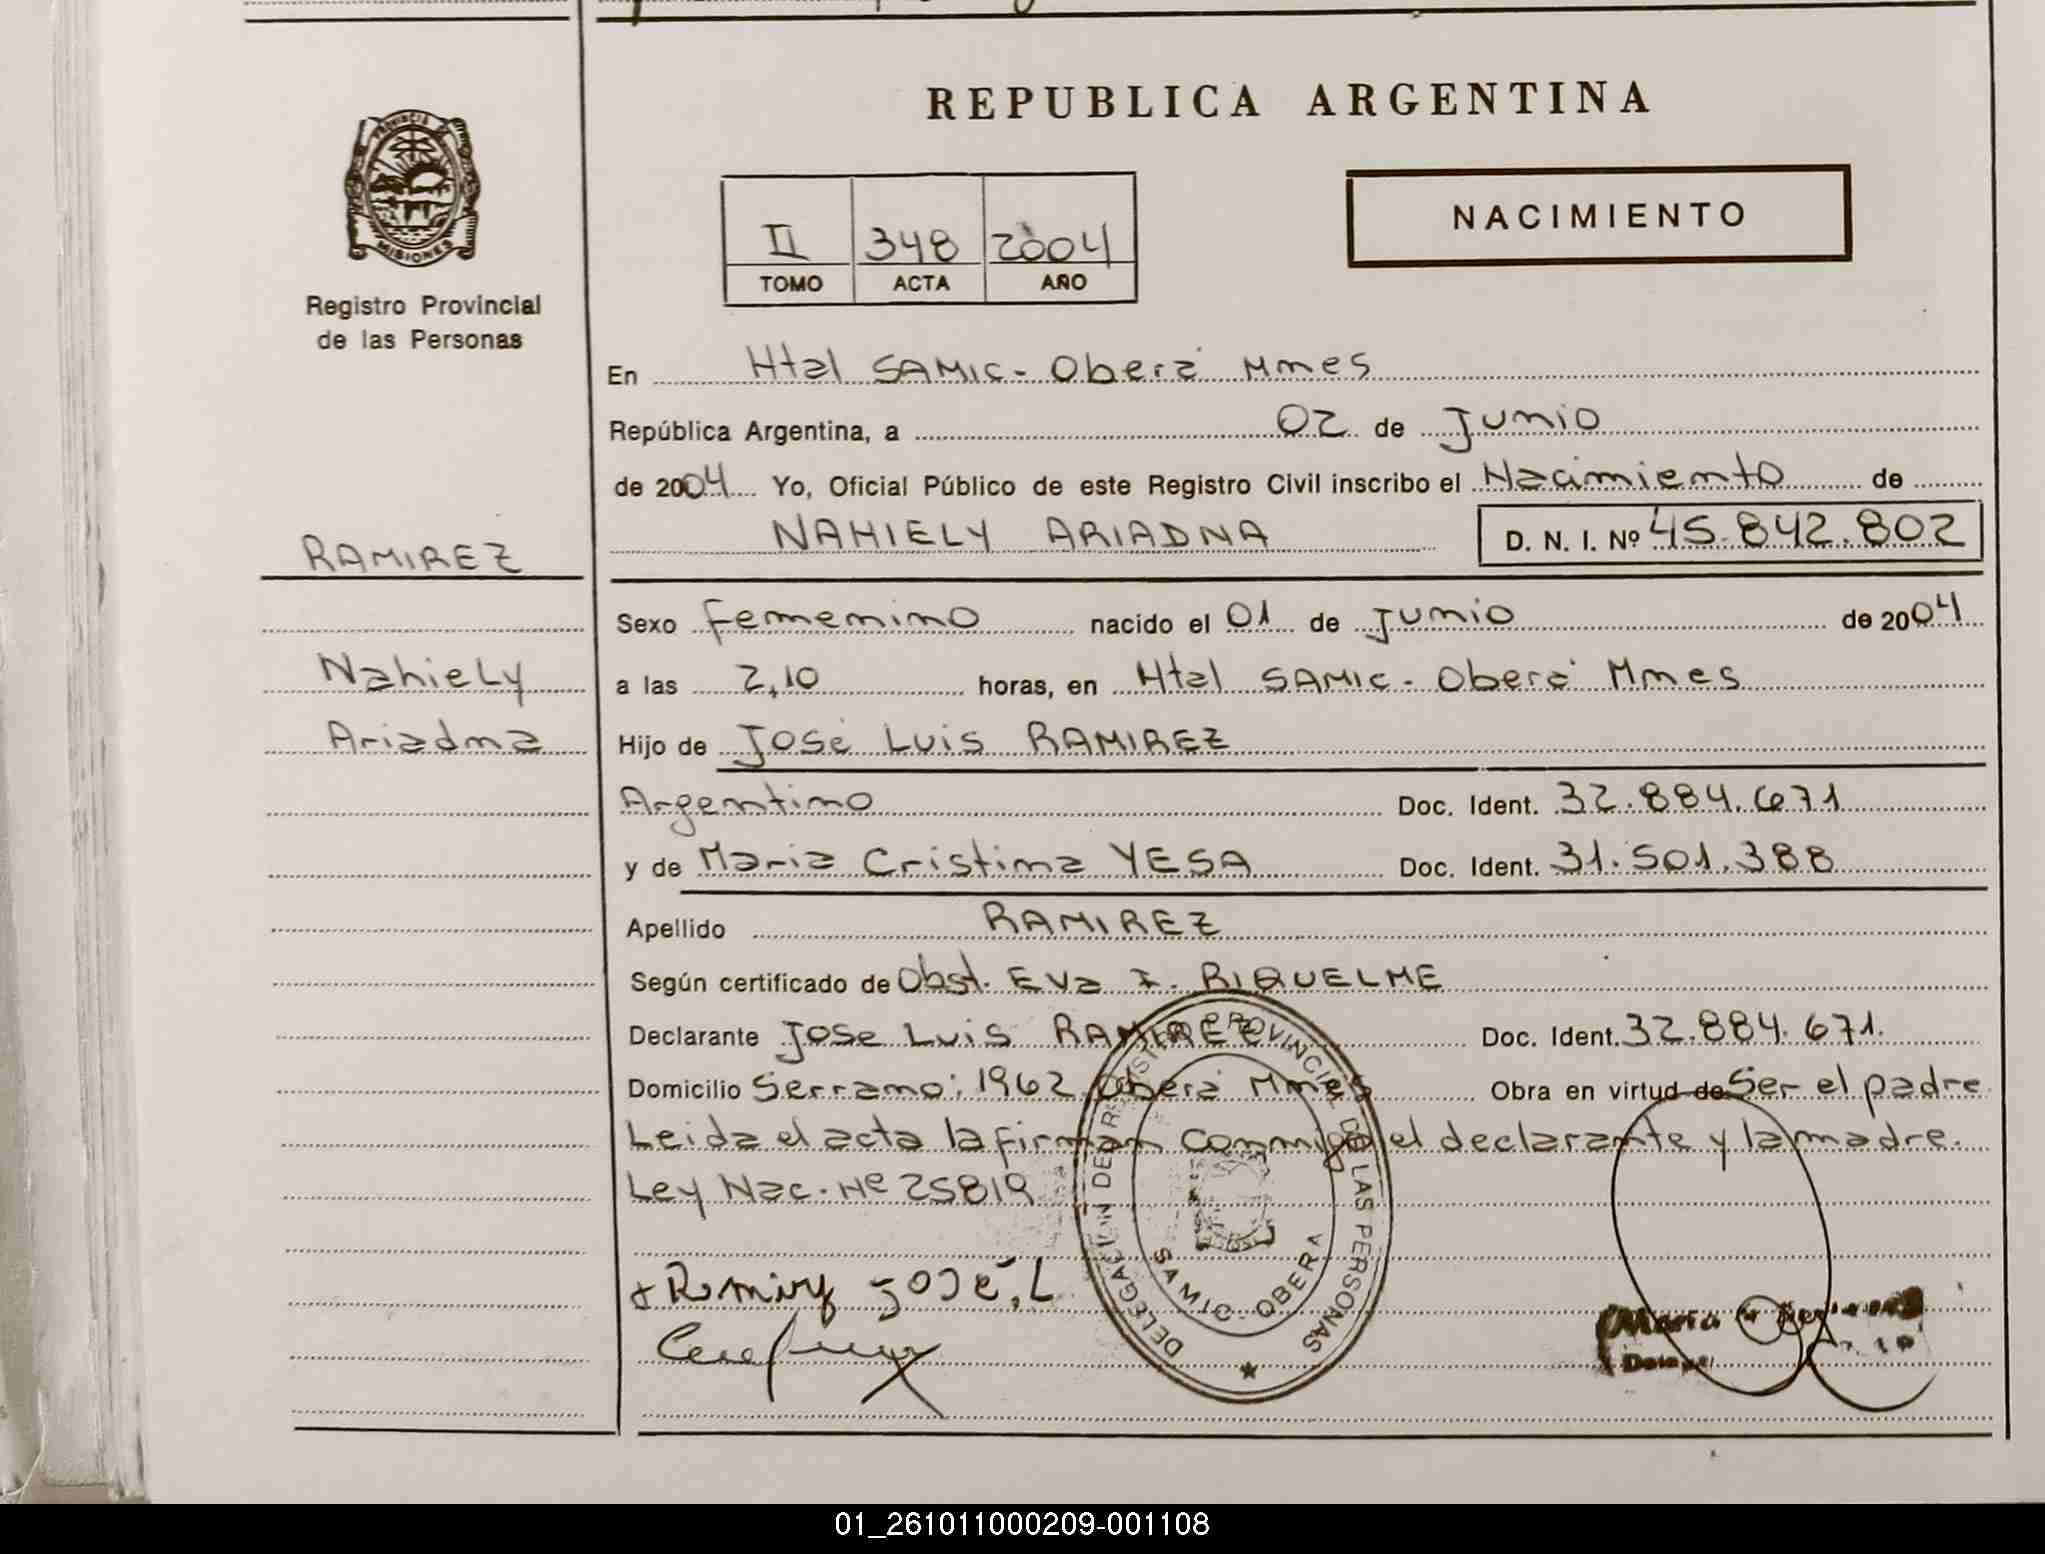 REPUBLICA ARGENTINA
PROVINCIA DE
MISIONES
Registro Provincial
de las Personas
NACIMIENTO
II 348 2004
TOMO ACTA AÑO
En Htal SAMIC - Oberá Mnes
República Argentina, a 02 de Junio
de 2004 Yo, Oficial Público de este Registro Civil inscribo el Nacimiento de
NAHIELY ARIADNA D. N. I. Nº 45.842.802
RAMIREZ
Nahiely
Ariadna
Sexo Femenino nacido el 01 de Junio de 2004
a las 2,10 horas, en Htal SAMIC - Oberá Mnes
Hijo de José Luis RAMIREZ
Argentino Doc. Ident. 32.884.671
y de Maria Cristina YESA Doc. Ident. 31.501.388
Apellido RAMIREZ
Según certificado de Obst. Eva I. RIQUELME
Declarante Jose Luis RAMIREZ Doc. Ident. 32.884.671.
Domicilio Serrano; 1962 Oberá Mnes Obra en virtud de Ser el padre
Leida el acta la firman conmigo el declarante y la madre.
Ley Nac. Nº 25819
José, L
DELEGACION DE REGISTRO PROVINCIAL DE LAS PERSONAS
SAMIC - OBERA
Maria
01_261011000209-001108